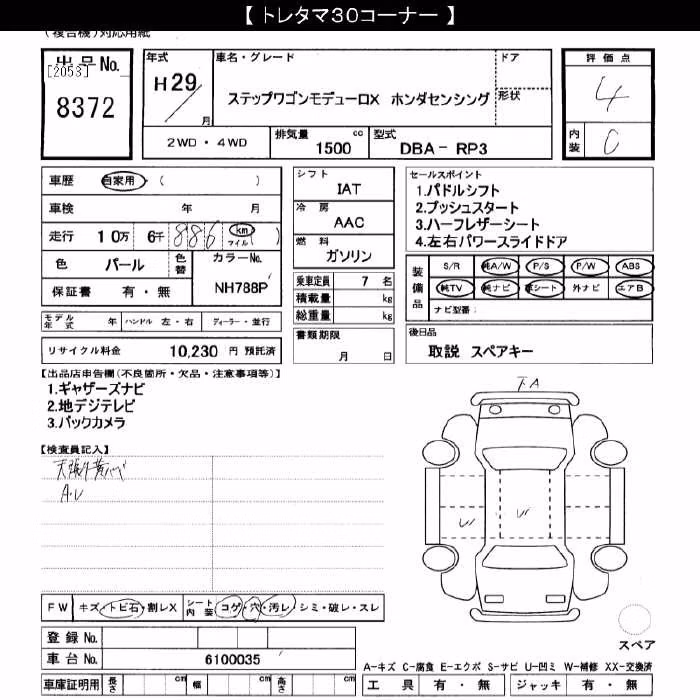 【 トレタマ30コーナー 】
(複合機)対応用紙
出品No.
[2053]
8372
年式
H29
月
車名・グレード
ステップワゴンモデューロX ホンダセンシング
ドア
形状
評価点
4
内装
C
2WD・4WD
排気量
1500 cc
型式
DBA- RP3
車歴 自家用 ( )
車検 年 月
走行 10万 6千 886 km マイル ( )
色 パール
色替
カラーNo.
NH788P
保証書 有・無
モデル年式 年 ハンドル 左・右 ディーラー・並行
リサイクル料金 10,230 円 預託済
シフト
IAT
冷房
AAC
燃料
ガソリン
乗車定員 7 名
積載量 kg
総重量 kg
書類期限
月 日
セールスポイント
1.パドルシフト
2.プッシュスタート
3.ハーフレザーシート
4.左右パワースライドドア
装備品
S/R 純A/W P/S P/W ABS
純TV 純ナビ 革シート 外ナビ エアB
ナビ型番:
後日品
取説 スペアキー
【出品店申告欄(不良箇所・欠品・注意事項等)】
1.ギャザーズナビ
2.地デジテレビ
3.バックカメラ
【検査員記入】
A.U
FW キズ・トビ石・割レX シート内装 コゲ・穴・汚レ・シミ・破レ・スレ
登録 No.
車台 No. 6100035
車庫証明用 長さ cm 幅 cm 高さ cm
スペア
A-キズ C-腐食 E-エクボ S-サビ U-凹ミ W-補修 XX-交換済
工具 有・無 ジャッキ 有・無